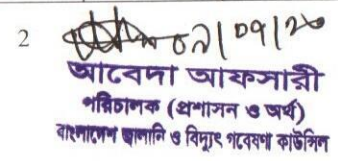 2 ০৯/09/20
আবেদা আফসারী
পরিচালক (প্রশাসন ও অর্থ)
বাংলাদেশ জ্বালানি ও বিদ্যুৎ গবেষণা কাউন্সিল